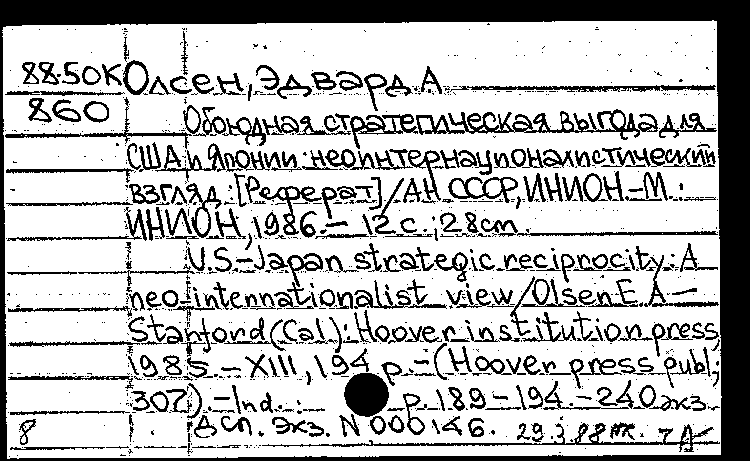 88-50К Олсен, Эдвард А
860
Обоюдная стратегическая выгода для
США и Японии: неоинтернационалистический
взгляд: [Реферат] / АН СССР, ИНИОН.-М.:
ИНИОН, 1986.- 12 с.; 28 cm.
U.S.-Japan strategic reciprocity: A
neo-internationalist view / Olsen E.A-
Stanford (Cal): Hoover institution press,
1985.- XIII, 194 p.-(Hoover press publ.;
307).-Ind.: p. 189-194.-240экз.
8 Дсп. Экз. N 000146. 29.3.88